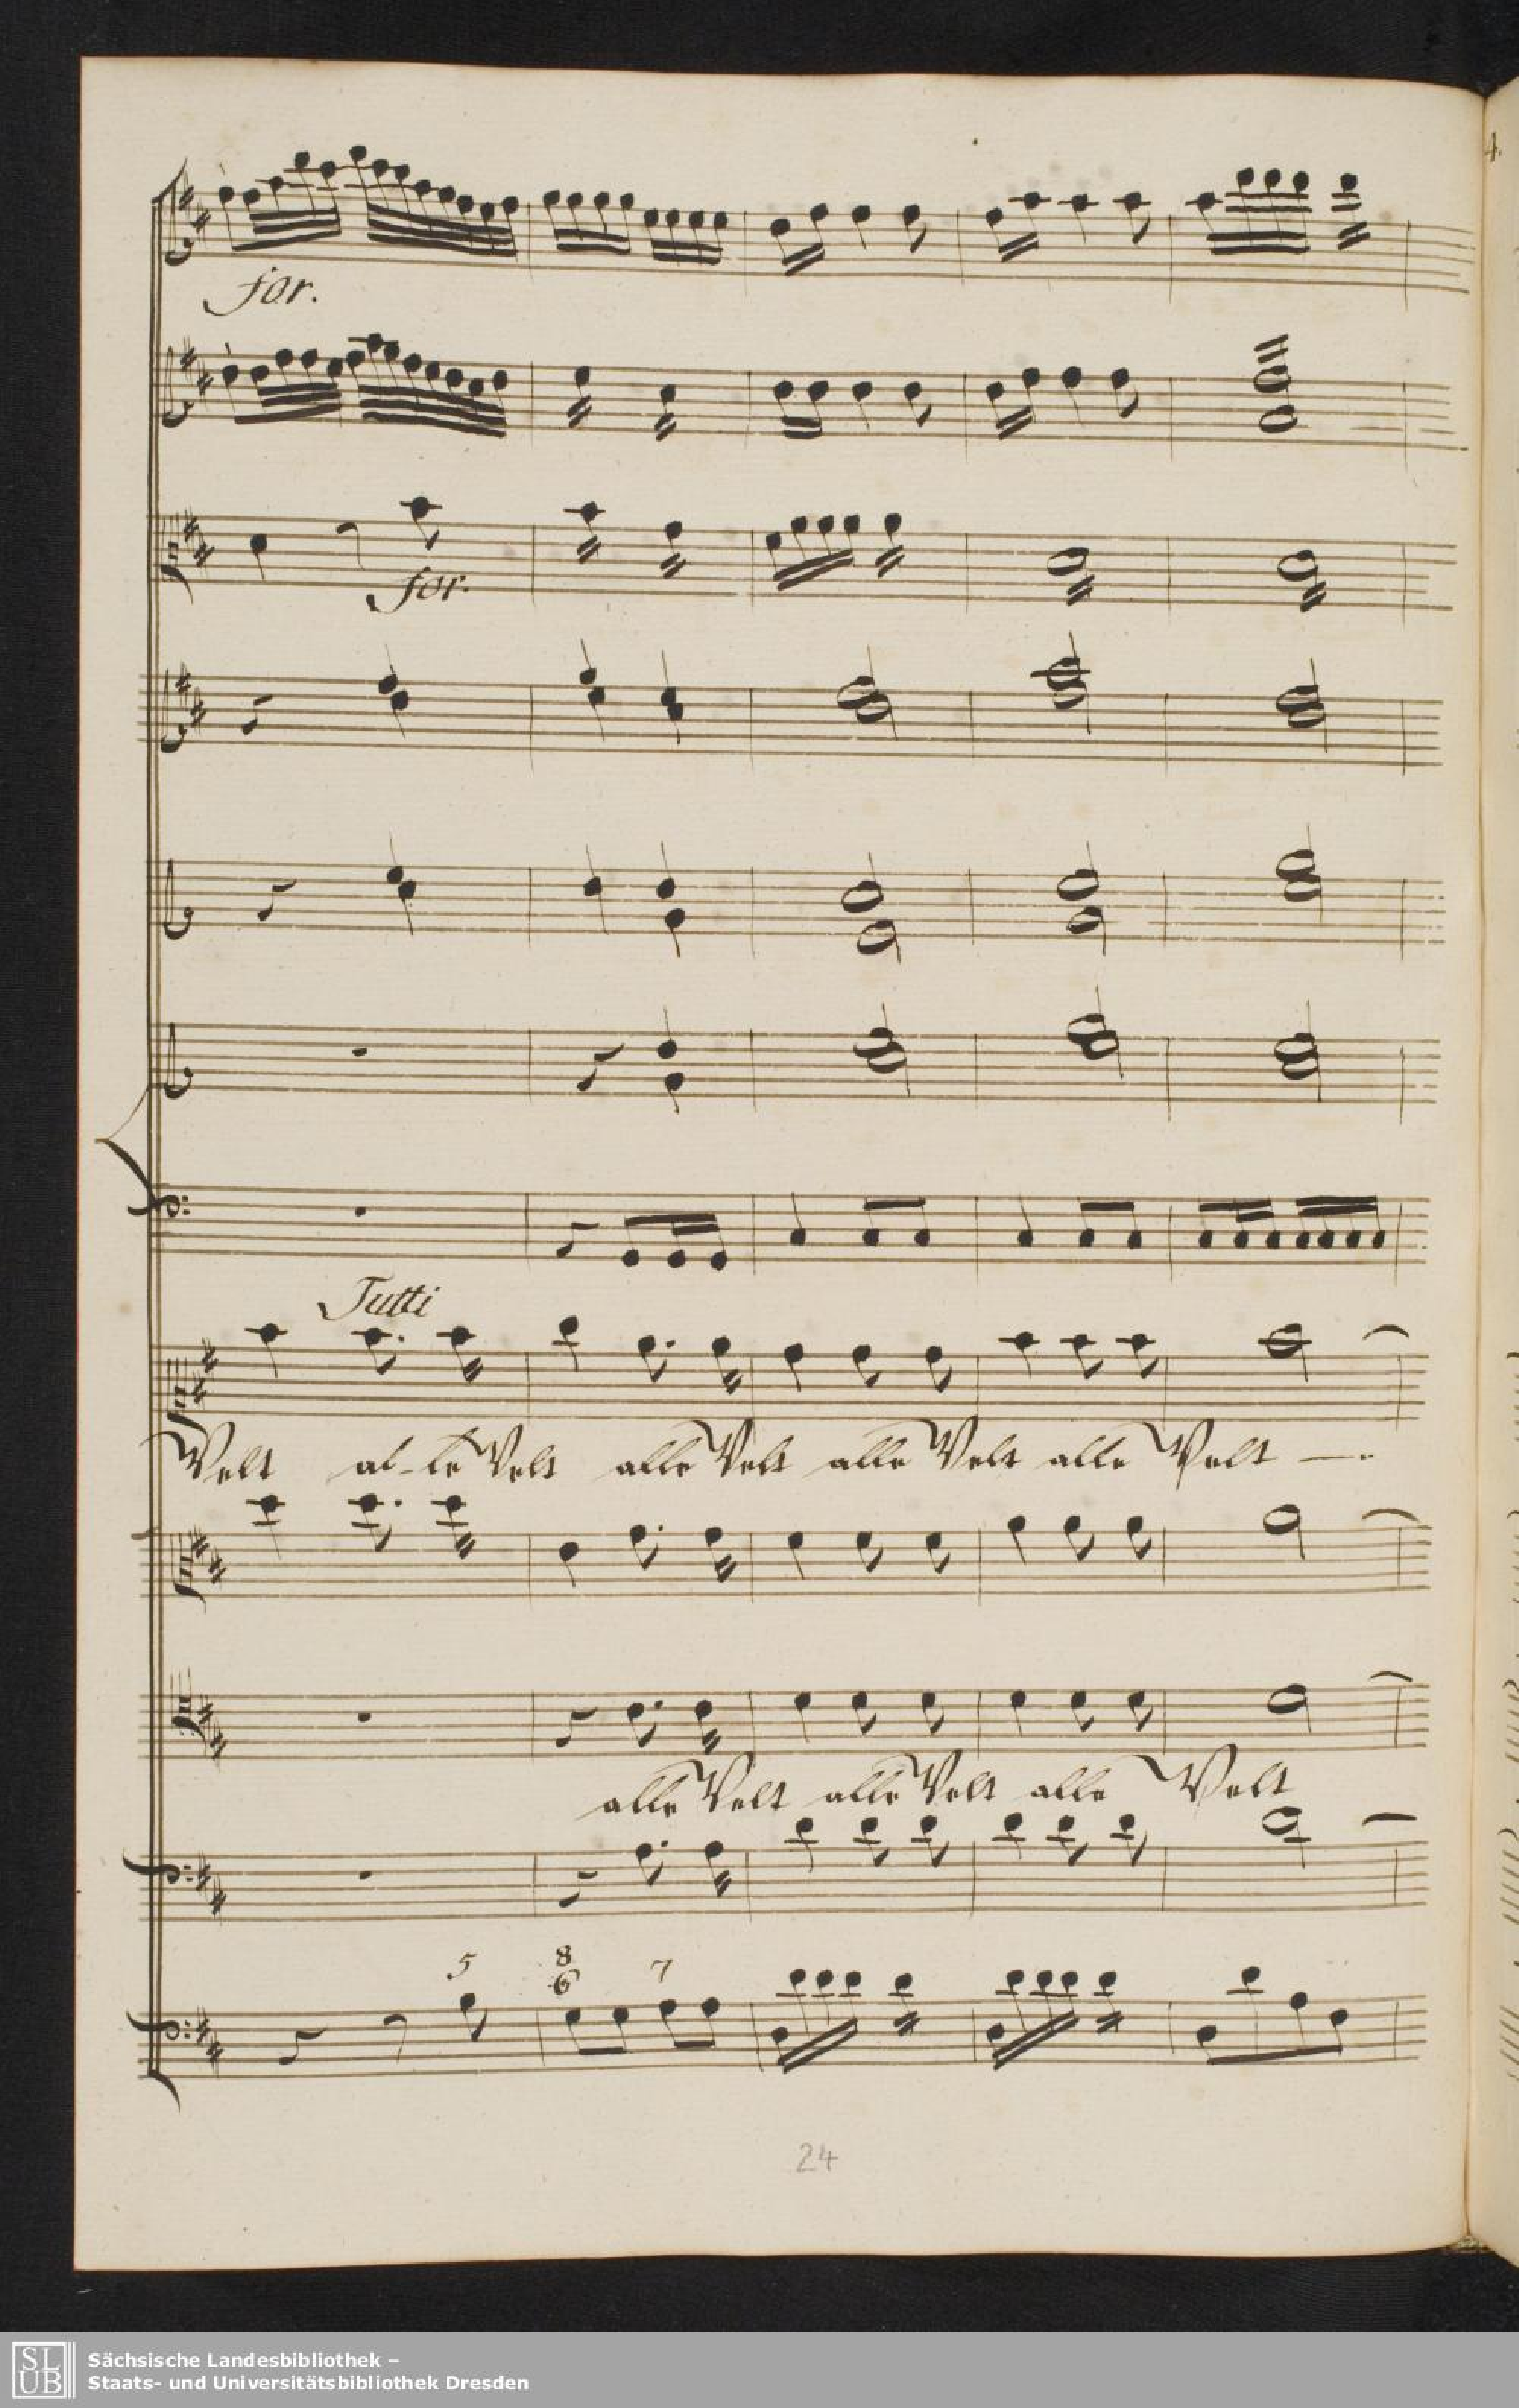 4.
for.
for.
Tutti
Welt al-le Welt alle Welt alle Welt alle Welt —.
alle Welt alle Welt alle Welt
5 8 7
6
24
SLUB Sächsische Landesbibliothek –
Staats- und Universitätsbibliothek Dresden